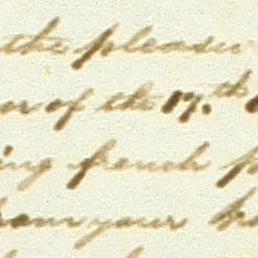 the pleasu
or of the 17.th
ing french p
from your h